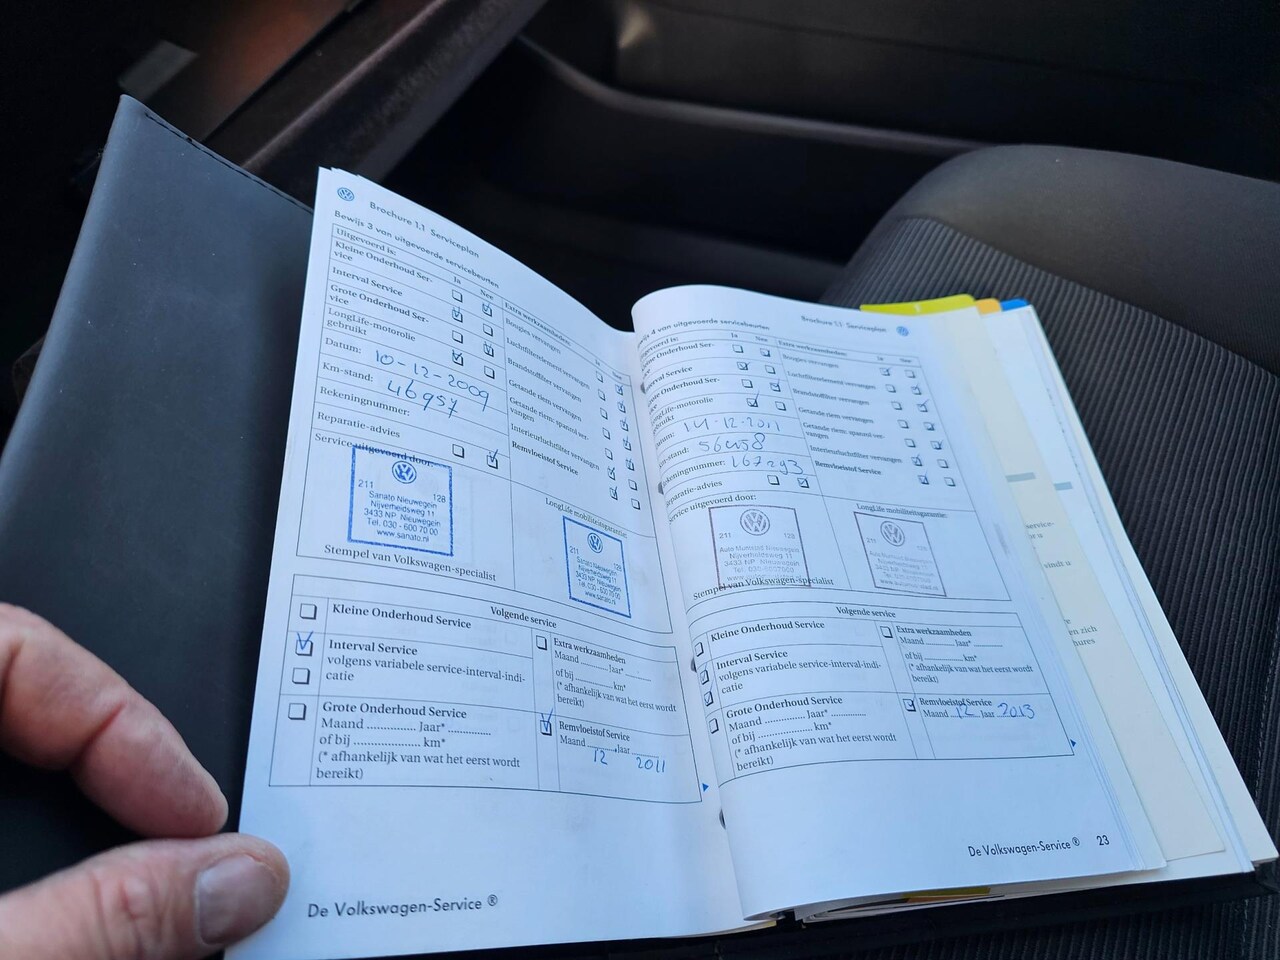 Brochure 1.1 Serviceplan
Bewijs 3 van uitgevoerde servicebeurten
Uitgevoerd is:
Ja Nee
Kleine Onderhoud Ser-
vice
Interval Service
Grote Onderhoud Ser-
vice
LongLife-motorolie
gebruikt
Datum: 10-12-2009
Km-stand: 46957
Rekeningnummer:
Reparatie-advies
Service uitgevoerd door:
211 128
Sanato Nieuwegein
Nijverheidsweg 11
3433 NP Nieuwegein
Tel. 030 - 600 70 00
www.sanato.nl
Stempel van Volkswagen-specialist
Extra werkzaamheden:
Bougies vervangen
Luchtfilterelement vervangen
Brandstoffilter vervangen
Getande riem vervangen
Getande riem: spanrol ver-
vangen
Interieurluchtfilter vervangen
Remvloeistof Service
LongLife mobiliteitsgarantie:
211 128
Sanato Nieuwegein
Nijverheidsweg 11
3433 NP Nieuwegein
Tel. 030 - 600 70 00
www.sanato.nl
Volgende service
Kleine Onderhoud Service
Interval Service
volgens variabele service-interval-indi-
catie
Grote Onderhoud Service
Maand ............... Jaar* ..............
of bij .................... km*
(* afhankelijk van wat het eerst wordt
bereikt)
Extra werkzaamheden
Maand .......... Jaar* ..........
of bij .............. km*
(* afhankelijk van wat het eerst wordt
bereikt)
Remvloeistof Service
Maand 12 Jaar 2011
De Volkswagen-Service ®
Brochure 1.1 Serviceplan
wijs 4 van uitgevoerde servicebeurten
gevoerd is:
Ja Nee
Kleine Onderhoud Ser-
erval Service
Grote Onderhoud Ser-
LongLife-motorolie
gebruikt
atum: 14-12-2011
m-stand: 56458
ekeningnummer: 167293
eparatie-advies
Service uitgevoerd door:
211 128
Nijverheidsweg 11
3433 NP Nieuwegein
Stempel van Volkswagen-specialist
Extra werkzaamheden:
Ja Nee
Bougies vervangen
Luchtfilterelement vervangen
Brandstoffilter vervangen
Getande riem vervangen
Getande riem: spanrol ver-
vangen
Interieurluchtfilter vervangen
Remvloeistof Service
LongLife mobiliteitsgarantie:
211
Volgende service
Kleine Onderhoud Service
Interval Service
volgens variabele service-interval-indi-
catie
Grote Onderhoud Service
Maand ............... Jaar* ..............
of bij .................... km*
(* afhankelijk van wat het eerst wordt
bereikt)
Extra werkzaamheden
Maand .......... Jaar* ..........
of bij .............. km*
(* afhankelijk van wat het eerst wordt
bereikt)
Remvloeistof Service
Maand 12 Jaar 2013
De Volkswagen-Service ® 23